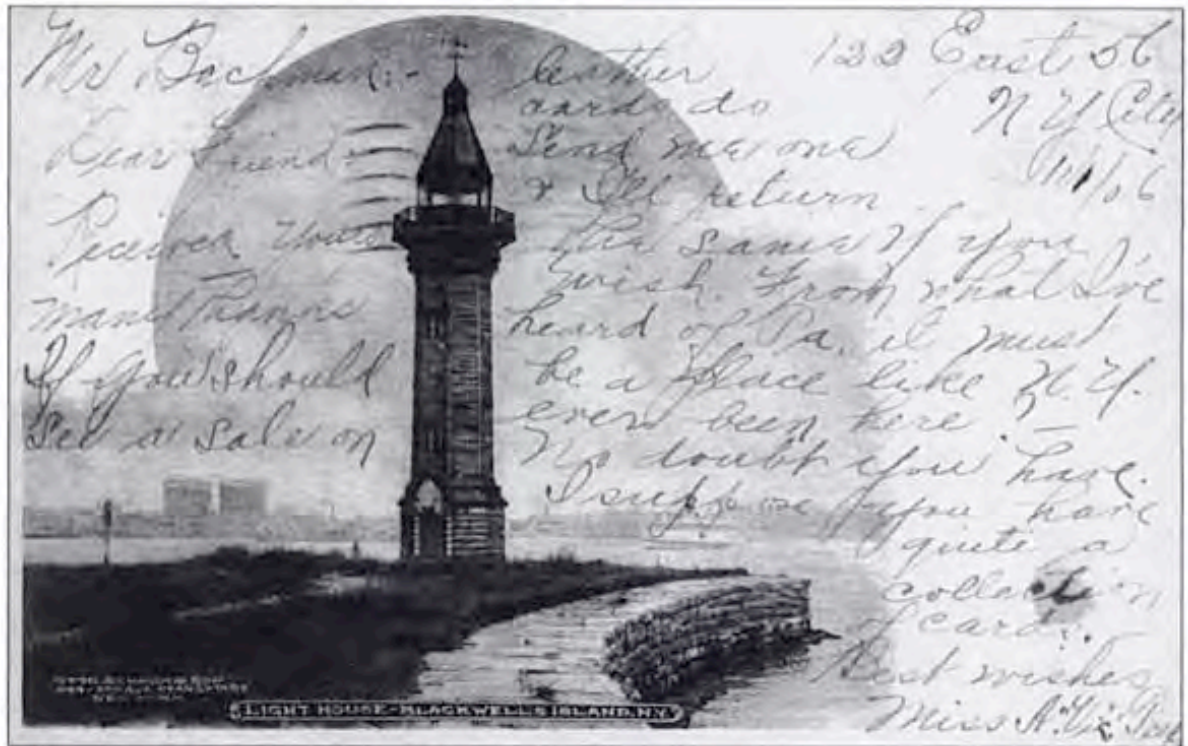 Mr Bachman:-
Dear Friend:-
Received yours
many Thanks
If you should
see a sale on
leather
cards do
Send me one
& Ill return
the same if you
wish. From what I've
heard of Pa. it must
be a place like N.Y.
ever been here
No doubt you have.
I suppose you have
quite a
collection
of cards.
Best wishes
Miss A.
122 East 56
N Y City
LIGHT HOUSE-BLACKWELLS ISLAND, N.Y.